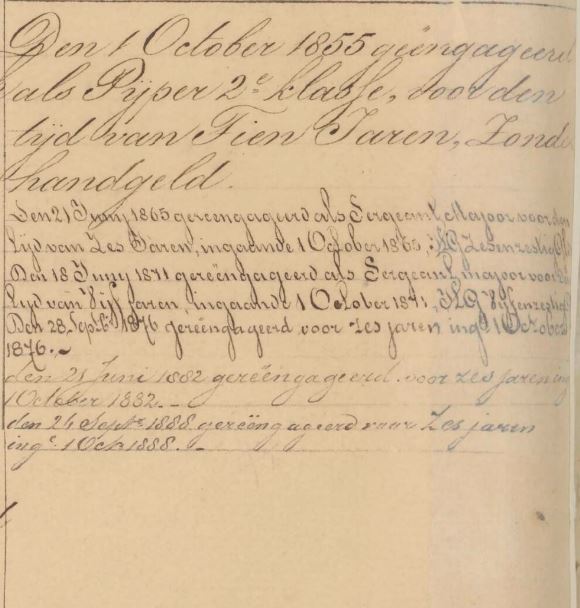 Den 1 October 1855 geëngageerd
als Pijper 2e klasse, voor den
tijd van Tien Jaren, Zonde
handgeld.
Den 21 Juny 1865 gereëngageerd als Sergeant Majoor voor den
tijd van Zes Jaren, ingaande 1 October 1865,
Den 18 Juny 1871 gereëngageerd als Sergeant majoor voor
tijd van Vijf jaren, ingaande 1 October 1871,
Den 28 Septbr 1876 gereëngageerd voor zes jaren inge 1 October
1876.
den 21 Juni 1882 gereëngageerd voor zes jaren ing
1 October 1882.
den 26 Septr 1888 gereëngageerd voor Zes jaren
inge 1 Oct 1888.